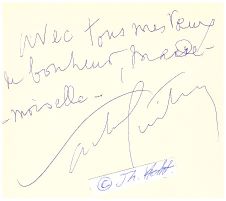 avec tous mes vœux
de bonheur, Made-
-moiselle-